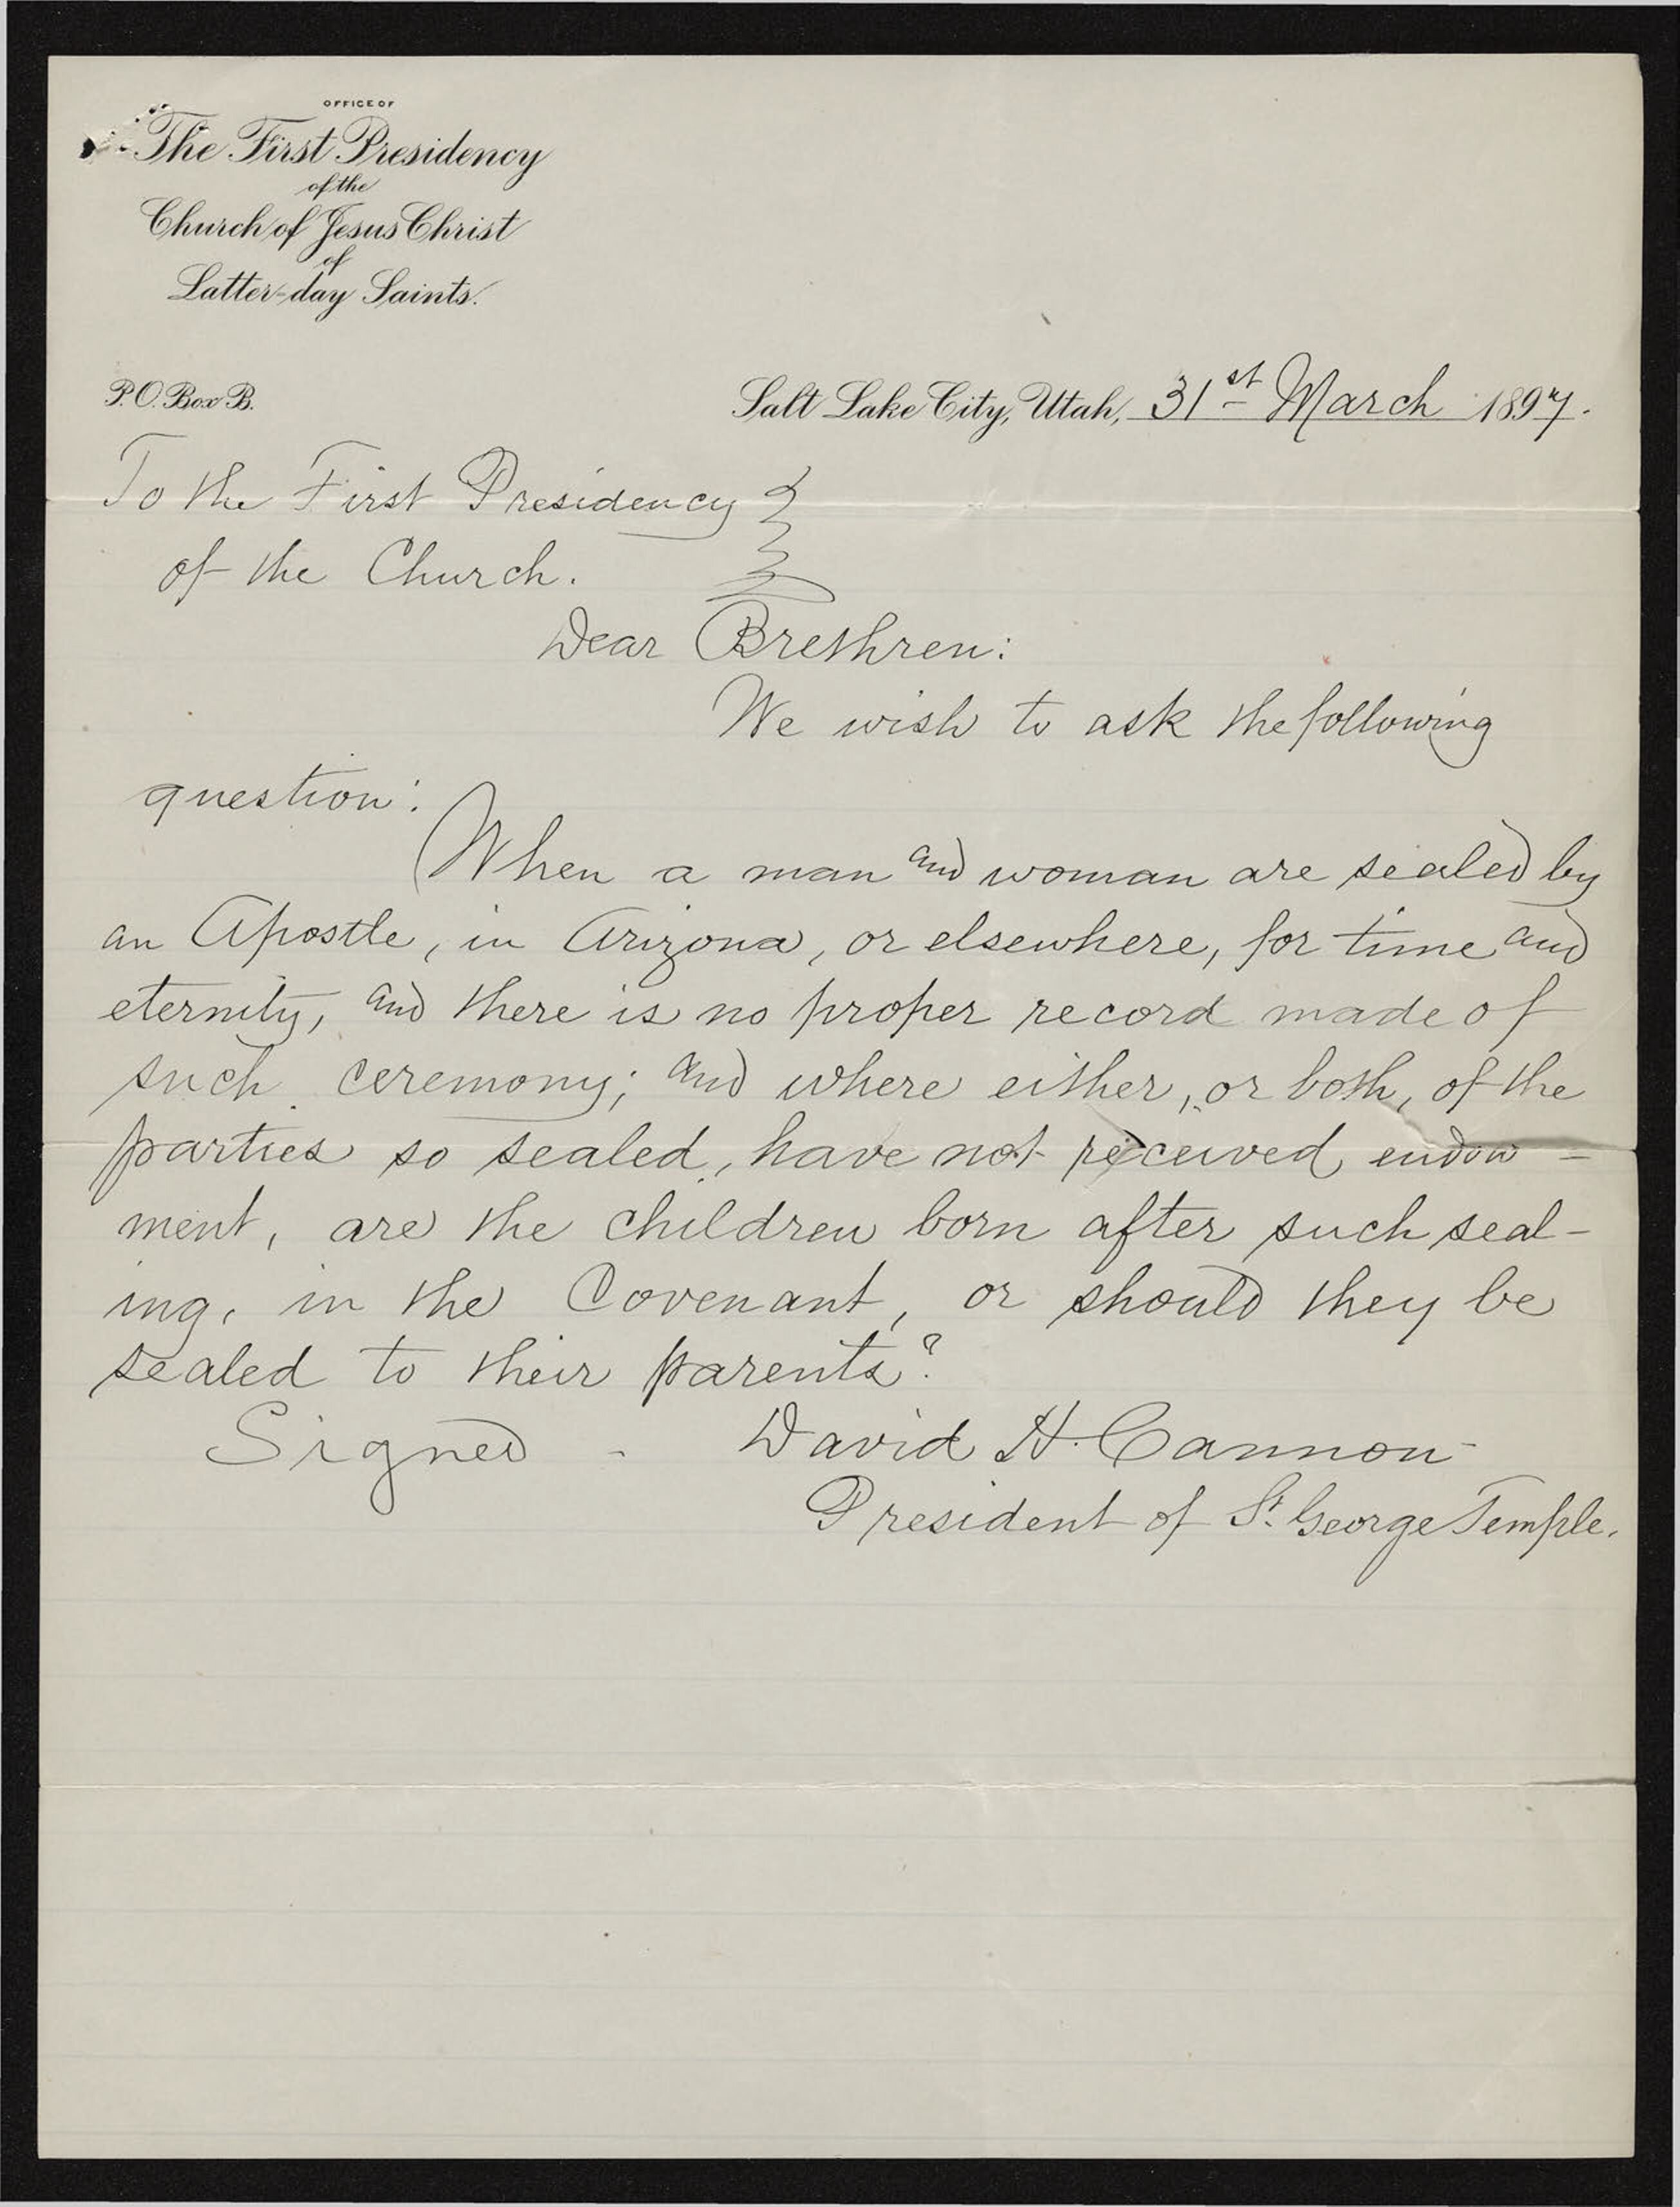 OFFICE OF
The First Presidency
of the
Church of Jesus Christ
of
Latter-day Saints.
P.O. Box B.
Salt Lake City, Utah, 31st March 1897.
To the First Presidency
of the Church.
Dear Brethren:
We wish to ask the following
question:
When a man and woman are sealed by
an Apostle, in Arizona, or elsewhere, for time and
eternity, and there is no proper record made of
such ceremony; and where either, or both, of the
parties so sealed, have not received endow-
ment, are the children born after such seal-
ing, in the Covenant, or should they be
sealed to their parents?
Signed - David H. Cannon
President of St. George Temple.